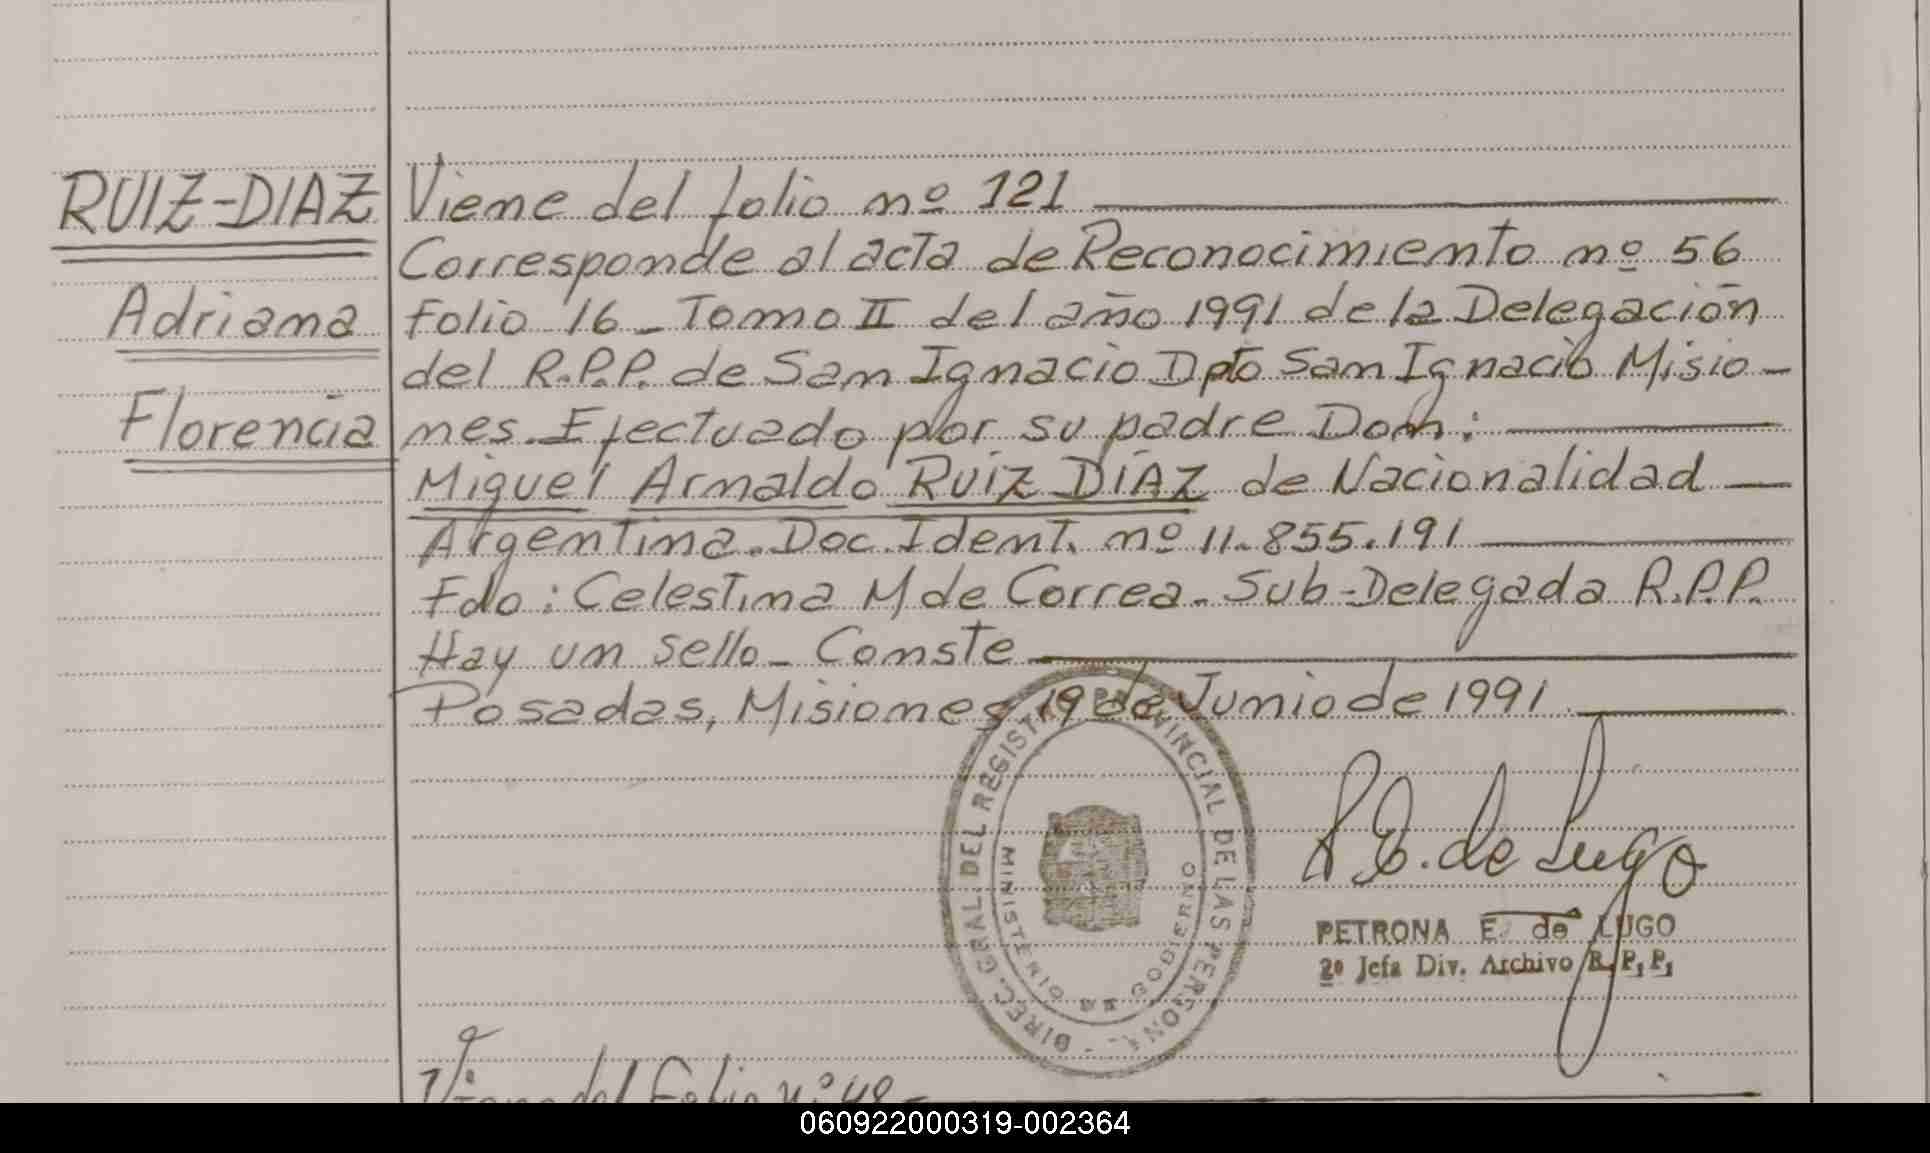 RUIZ-DIAZ
Adriana
Florencia
Viene del folio nº 121
Corresponde al acta de Reconocimiento nº 56
Folio 16 - Tomo II del año 1991 de la Delegación
del R.P.P. de San Ignacio Dpto San Ignacio Misio-
nes. Efectuado por su padre Don:
Miguel Arnaldo RUIZ DÍAZ de Nacionalidad
Argentina. Doc. Ident. nº 11.855.191
Fdo: Celestina M de Correa. Sub-Delegada R.P.P.
Hay un sello - Conste
Posadas, Misiones, 19 de Junio de 1991
DIREC. GRAL. DEL REGISTRO PROVINCIAL DE LAS PERSONAS
MINISTERIO GOBIERNO
P. E. de Lugo
PETRONA E. de LUGO
2º Jefa Div. Archivo R. P. P.
Viene del Folio nº 48
060922000319-002364